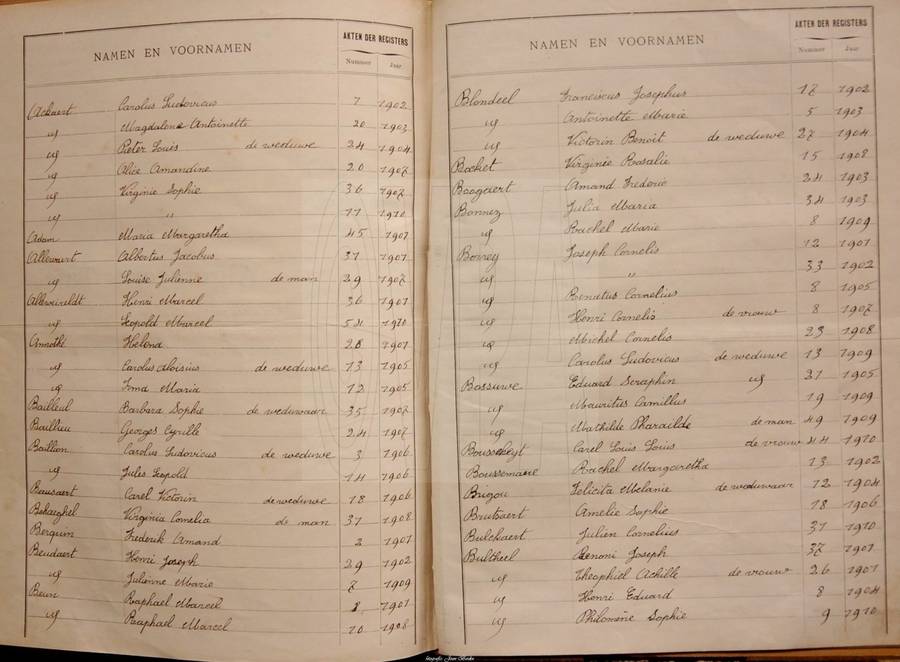 NAMEN EN VOORNAMEN AKTEN DER REGISTERS
Nummer Jaar
Ackaert Carolus Ludovicus 7 1902
id Magdalena Antoinette 20 1903
id Pieter Louis de weduwe 24 1904
id Alice Amandine 20 1907
id Virginie Sophie 36 1907
id " 11 1910
Adam Maria Margaretha 45 1901
Allewaert Albertus Jacobus 31 1901
id Louise Julienne de man 29 1907
Allewireldt Henri Marcel 36 1901
id Leopold Marcel 54 1910
Helena 28 1901
id Carolus Aloisius de weduwe 13 1905
id Irma Maria 12 1905
Bailleul Barbara Sophie de weduwaar 35 1907
Baillieu Georges Cyrille 24 1907
Baillion Carolus Ludovicus de weduwe 3 1906
id Jules Leopold 14 1906
Beusaert Carel Victorin de weduwe 18 1906
Virginia Cornelia de man 31 1908
Berquin Frederik Amand 2 1901
Beudaert Henri Joseph 29 1902
id Julienne Marie 7 1909
Beun Raphael Marcel 8 1901
id Raaphael Marcel 10 1908
NAMEN EN VOORNAMEN AKTEN DER REGISTERS
Nummer Jaar
Blondeel Franciscus Josephus 17 1902
id Antoinette Marie 5 1903
id Victorin Benoit de weduwe 27 1904
Bocket Virginie Rosalie 15 1908
Boogaert Amand Frederic 24 1903
Bonnez Julia Maria 34 1903
id Rachel Marie 8 1909
Bonrey Joseph Cornelis 12 1901
id " 33 1902
id Renatus Cornelius 8 1905
id Henri Cornelis de vrouw 8 1907
id Michel Cornelis 23 1908
id Carolus Ludovicus de weduwe 13 1909
Bossuwe Eduard Seraphin id 21 1905
id Mauritius Camillus 19 1909
id Mathilde Pharailde de man 49 1909
Carel Louis Louis de vrouw 44 1910
Boussemaere Rachel Margaretha 13 1902
Brigou Felicita Melanie de weduwaar 12 1904
Brutsaert Amelie Sophie 18 1906
Bulckaert Julien Cornelius 31 1910
Bultheel Benoni Joseph 37 1901
id Theophiel Achille de vrouw 26 1901
id Henri Eduard 8 1904
id Philomène Sophie 9 1910